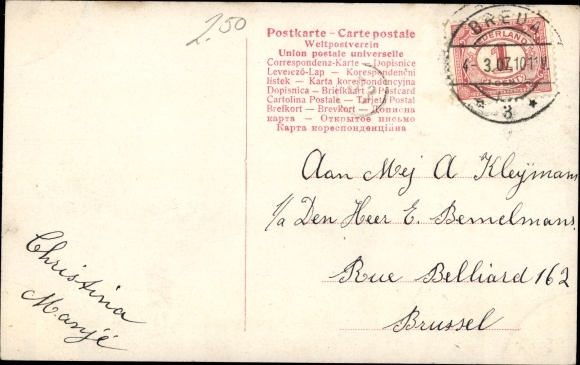 2.50
Postkarte - Carte postale
Weltpostverein
Union postale universelle
Correspondenz-Karte — Dopisnice
Levelező-Lap — Korespondenční
lístek — Karta korespondencyjna
Dopisnica — Briefkaart — Postcard
Cartolina Postale — Tarjeta Postal
Brefkort — Brevkort — Дописна
карта — Открытое письмо
Карта кореспонденційна
BREDA
NEDERLAND
1
4- 3.07.10-11V
3
Aan Mej A Kleijmans
p/a Den Heer E. Bemelmans
Rue Belliard 162
Brussel
Christina
Manjé